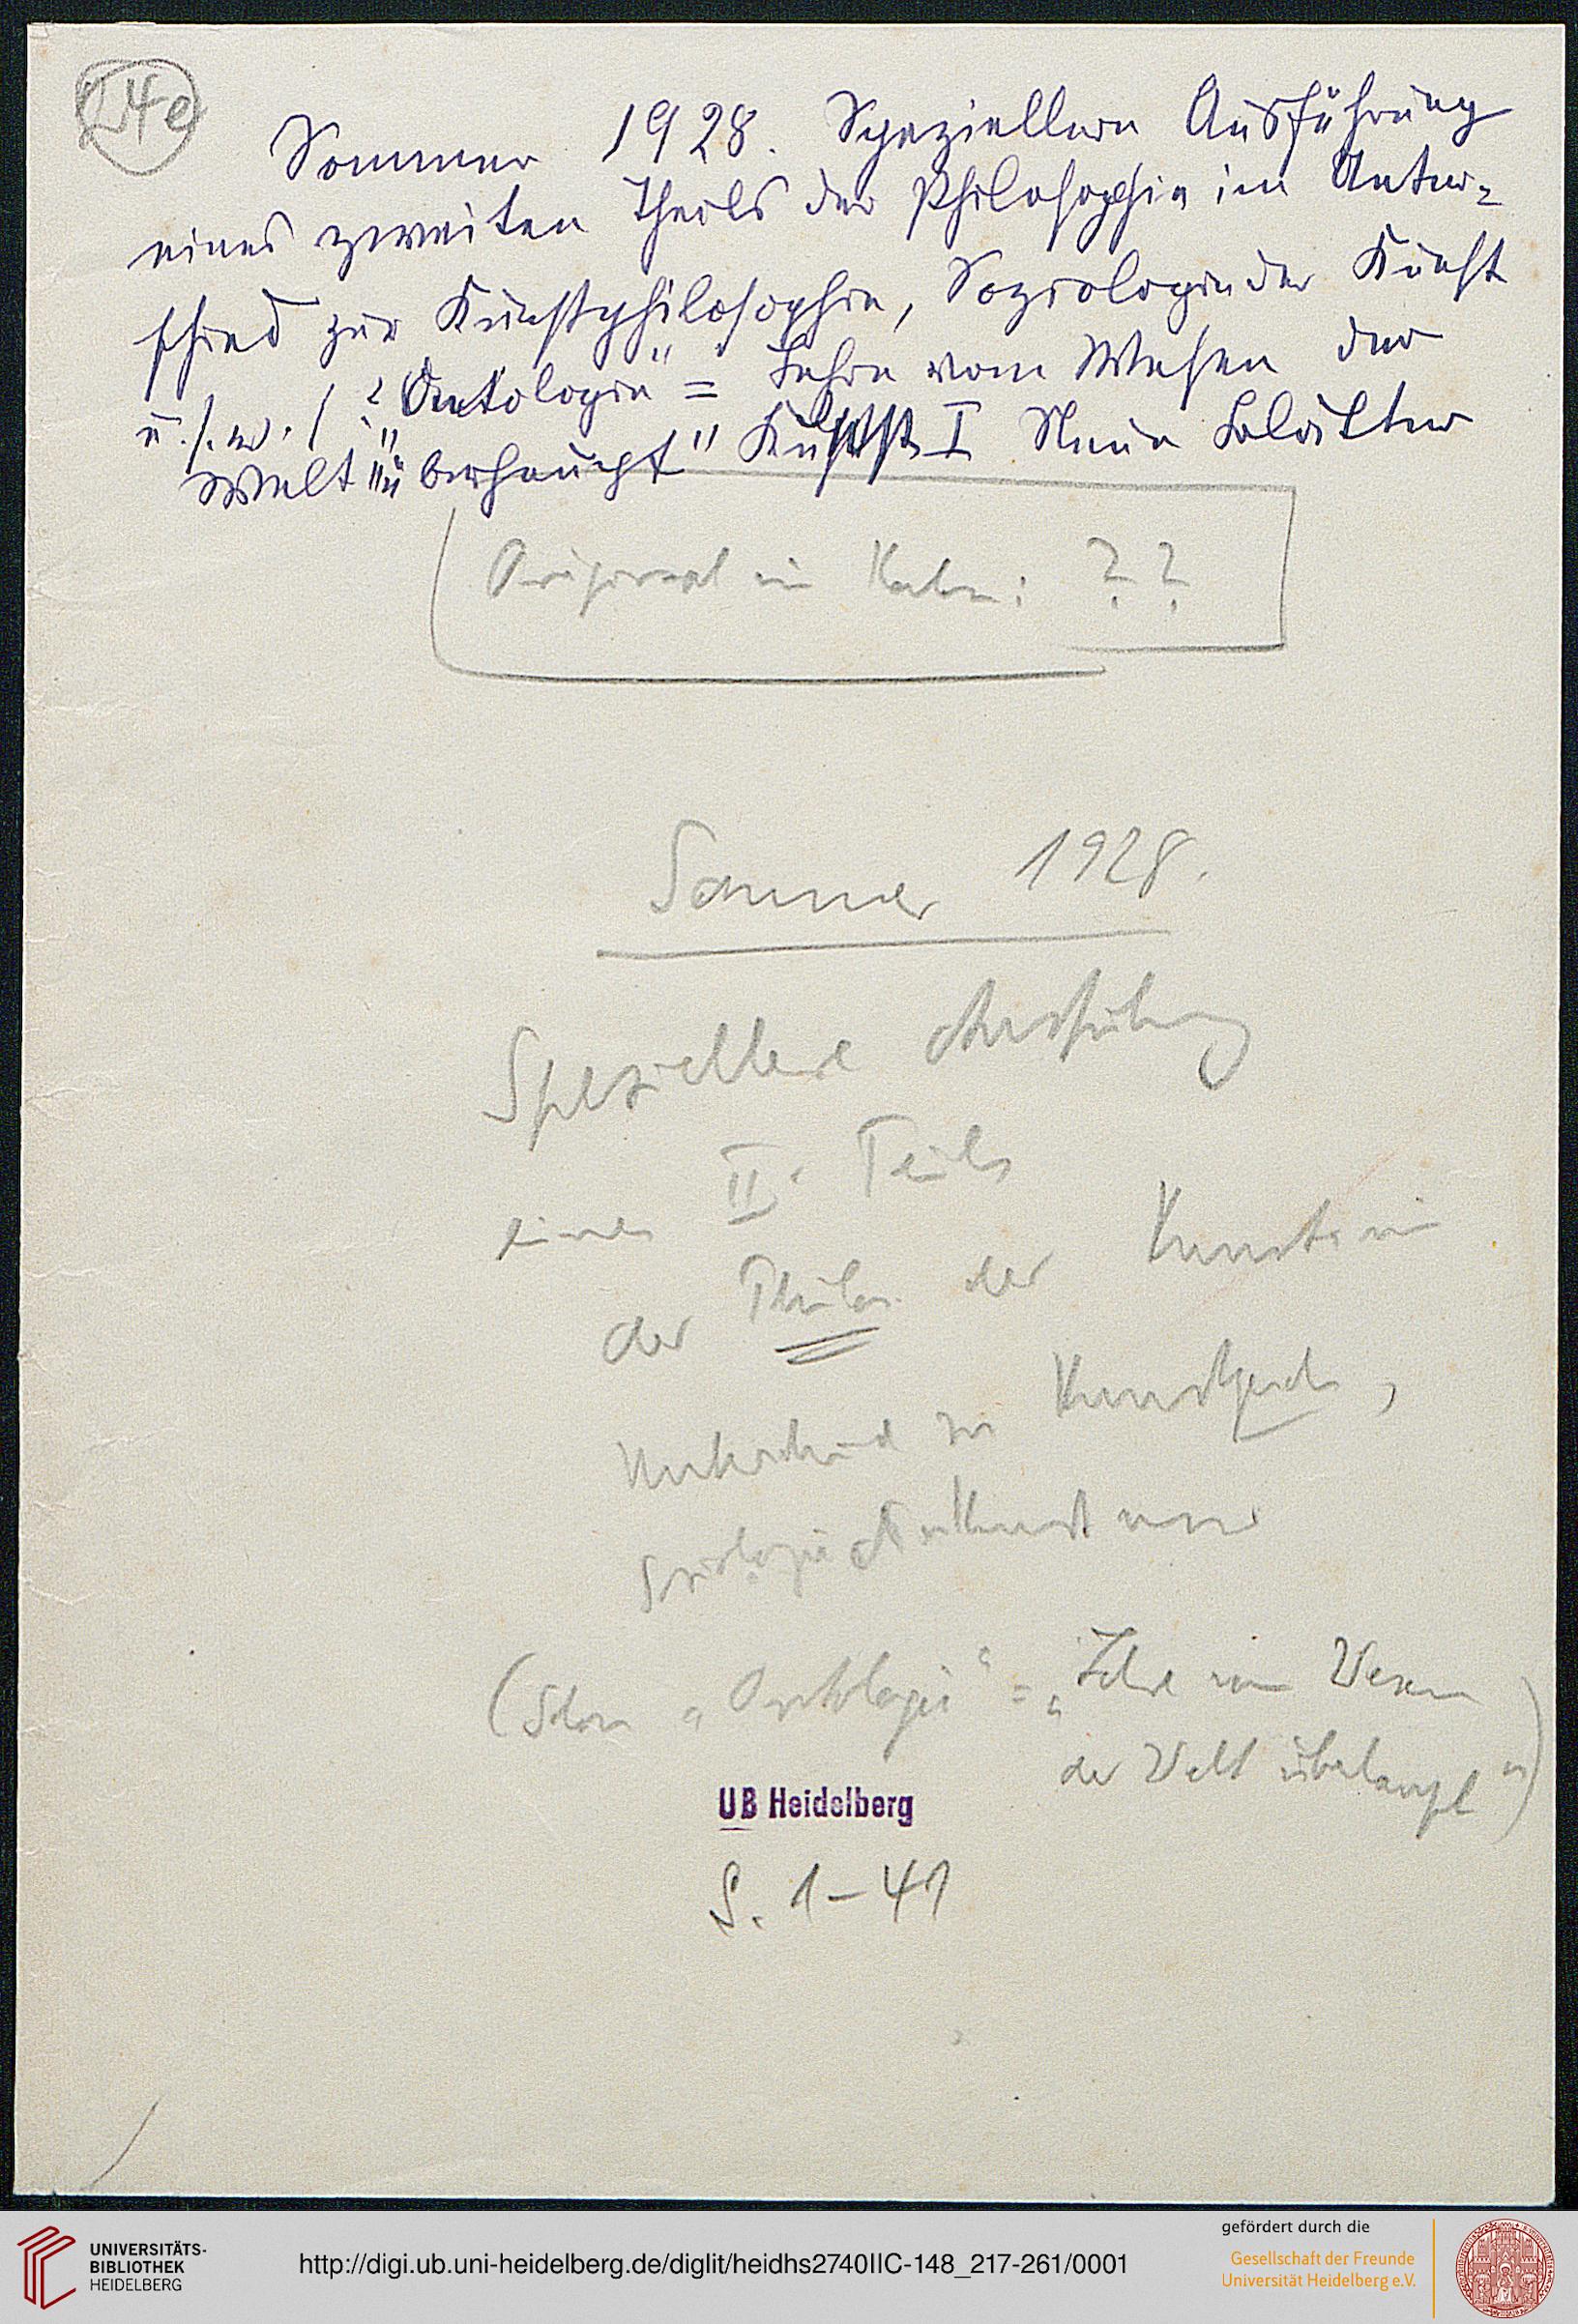 24e
Sommer 1928. Speziellere Ausführung
eines zweiten Theils der Philosophie im Unter-
schied zur Kunstphilosophie, Soziologie der Kunst
u.s.w. / „Ontologie" = Lehre vom Wesen der
Welt überhaupt" I Neue Blätter
Original in ??
Sommer 1928.
Speziellere Ausführung
eines II. Teils
der Philos. der Kunst im
Unterschied zur Kunstgesch,
Soziologie der Kunst usw
( „Ontologie" = „Lehre vom Wesen
der Welt überhaupt")
UB Heidelberg
S. 1-41
UNIVERSITÄTS-
BIBLIOTHEK
HEIDELBERG
http://digi.ub.uni-heidelberg.de/diglit/heidhs2740IIC-148_217-261/0001
gefördert durch die
Gesellschaft der Freunde
Universität Heidelberg e.V.